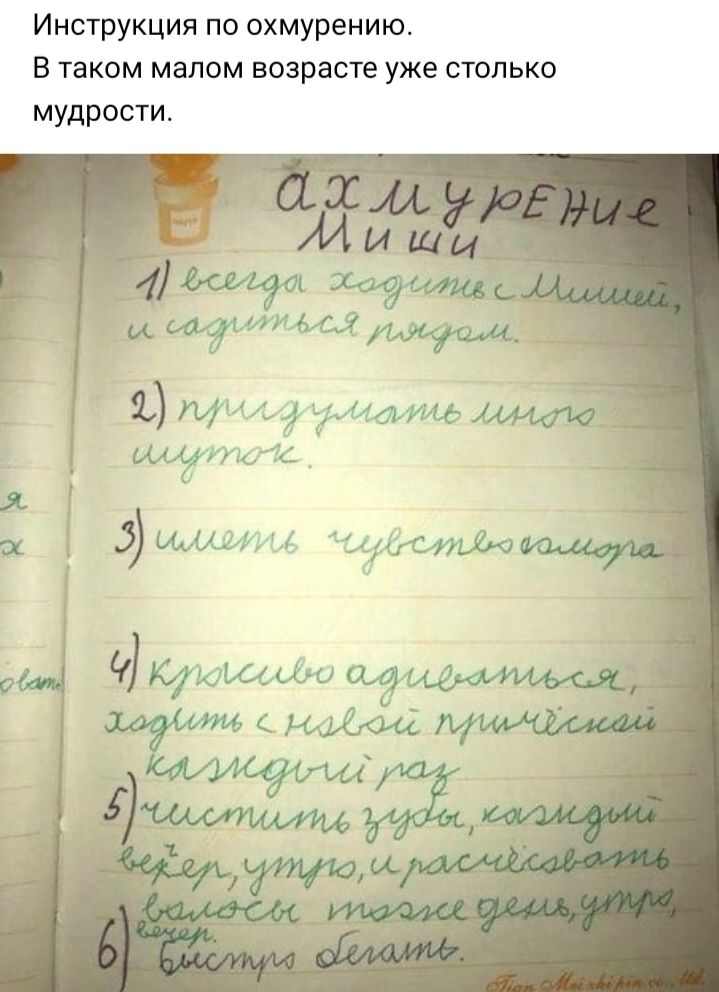 Инструкция по охмурению.
В таком малом возрасте уже столько
мудрости.
ахмурение
Миши
1) всегда ходить с Мишей,
и садиться рядом.
2) придумать много
шуток.
3) иметь чувство юмора
4) красиво адиваться,
ходить с новой причёской
каждый раз
5) чистить зубы, каждый
вечер, утро, и расчёсовать
волосы тоже день, утро,
вечер.
6) быстро бегать.
я
х
овать